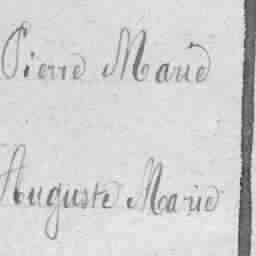 Pierre Marie
Auguste Marie